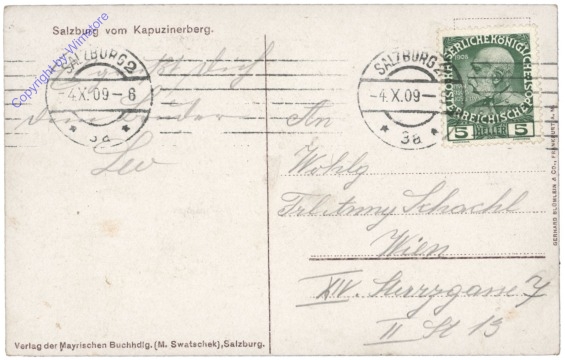 Salzburg vom Kapuzinerberg.
Copyright by Winetore
SALZBURG 2
4.X.09-6
* 3a *
SALZBURG
-4.X.09-
* 3a
KAISERLICHE KÖNIGLICHE ÖSTERREICHISCHE POST
5 HELLER 5
dein Bruder
Leo
An
Wohlg
Frl. Anny Schachl
Wien
XIV. Herzgasse 7
II St 13
Verlag der Mayrischen Buchhdlg. (M. Swatschek), Salzburg.
GERHARD BLÜMLEIN & CO., FRANKFURT A. M.